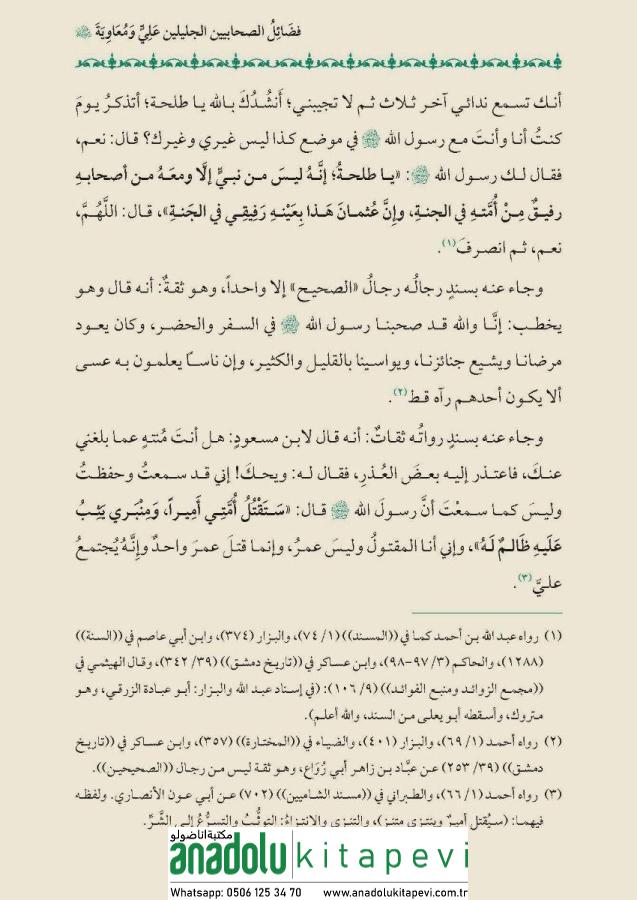 فضَائِلُ الصحابيين الجليلين عَلِيٍّ وَمُعَاوِيَةَ ﷺ
أنـك تسـمع ندائـي آخـر ثـلاث ثـم لا تجيبنـي؛ أَنشُـدُكَ بـالله يـا طلحـة؛ أتـذكـرُ يـومَ
كنتُ أنا وأنتَ مع رسول الله ﷺ في موضع كذا ليس غيري وغيرك؟ قال: نعم،
فقال لـك رسـول الله ﷺ: «يـا طلحـةُ؛ إنَّـهُ ليـسَ مـن نبـيٍّ إلَّا ومعَـهُ مـن أصحابـهِ
رفيـقٌ مِـنْ أُمَّتـهِ في الجنـةِ، وإنَّ عُثمـانَ هَـذا بِعَيْنِـهِ رَفِيقِـي في الجَنـةِ»، قـال: اللَّهُـمَّ،
نعـم، ثـم انصـرفَ(١).
وجـاء عنـه بسـندٍ رجالُـه رجـالُ «الصحيـح» إلا واحـداً، وهـو ثقـةٌ: أنـه قـال وهـو
يخطـب: إنَّـا والله قـد صحبنـا رسـول الله ﷺ في السـفر والحضـر، وكان يعـود
مرضانـا ويشـيع جنائزنـا، ويواسـينا بالقليـل والكثيـر، وإن ناسـاً يعلمـون بـه عسـى
ألا يكـون أحدهـم رآه قـط(٢).
وجـاء عنـه بسـندٍ رواتُـه ثقـاتٌ: أنـه قـال لابـن مسـعودٍ: هـل أنـتَ مُنتـهٍ عمـا بلغني
عنـكَ، فاعتـذر إليـه بعـضَ العُـذرِ، فقـال لـه: ويحـكَ! إني قـد سـمعتُ وحفظـتُ
وليـسَ كمـا سـمعْتَ أنَّ رسـولَ الله ﷺ قـال: «سَـتَقْتُلُ أُمَّتِـي أَمِيـراً، وَمِنْبَـرِي يَثِـبُ
عَلَيـهِ ظَالـمٌ لَـهُ»، وإني أنـا المقتـولُ وليـسَ عمـرُ، وإنمـا قتـلَ عمـرَ واحـدٌ وإنَّـهُ يُجتمـعُ
علـيَّ(٣).
(١) رواه عبد الله بن أحمد كما في ((المسند)) (١/ ٧٤)، والبزار (٣٧٤)، وابن أبي عاصم في ((السنة))
(١٢٨٨)، والحاكم (٣/ ٩٧-٩٨)، وابن عساكر في ((تاريخ دمشق)) (٣٩/ ٣٤٢)، وقال الهيثمي في
((مجمع الزوائد ومنبع الفوائد)) (٩/ ١٠٦): (في إسناد عبد الله والبزار: أبو عبادة الزرقي، وهو
متروك، وأسقطه أبو يعلى من السند، والله أعلم).
(٢) رواه أحمد (١/ ٦٩)، والبزار (٤٠١)، والضياء في ((المختارة)) (٣٥٧)، وابن عساكر في ((تاريخ
دمشق)) (٣٩/ ٢٥٣) عن عبَّاد بن زاهر أبي رُوَاع، وهو ثقة ليس من رجال ((الصحيحين)).
(٣) رواه أحمد (١/ ٦٦)، والطبراني في ((مسند الشاميين)) (٧٠٢) عن أبي عون الأنصاري. ولفظه
فيهما: (سيُقتل أميرٌ وينتزي منتزٍ)، والتنزي والانتزاءُ: التوثُّبُ والتسرُّعُ إلى الشَّرِّ.
مكتبة اناضولو
anadolu kitapevi
Whatsapp: 0506 125 34 70 www.anadolukitapevi.com.tr